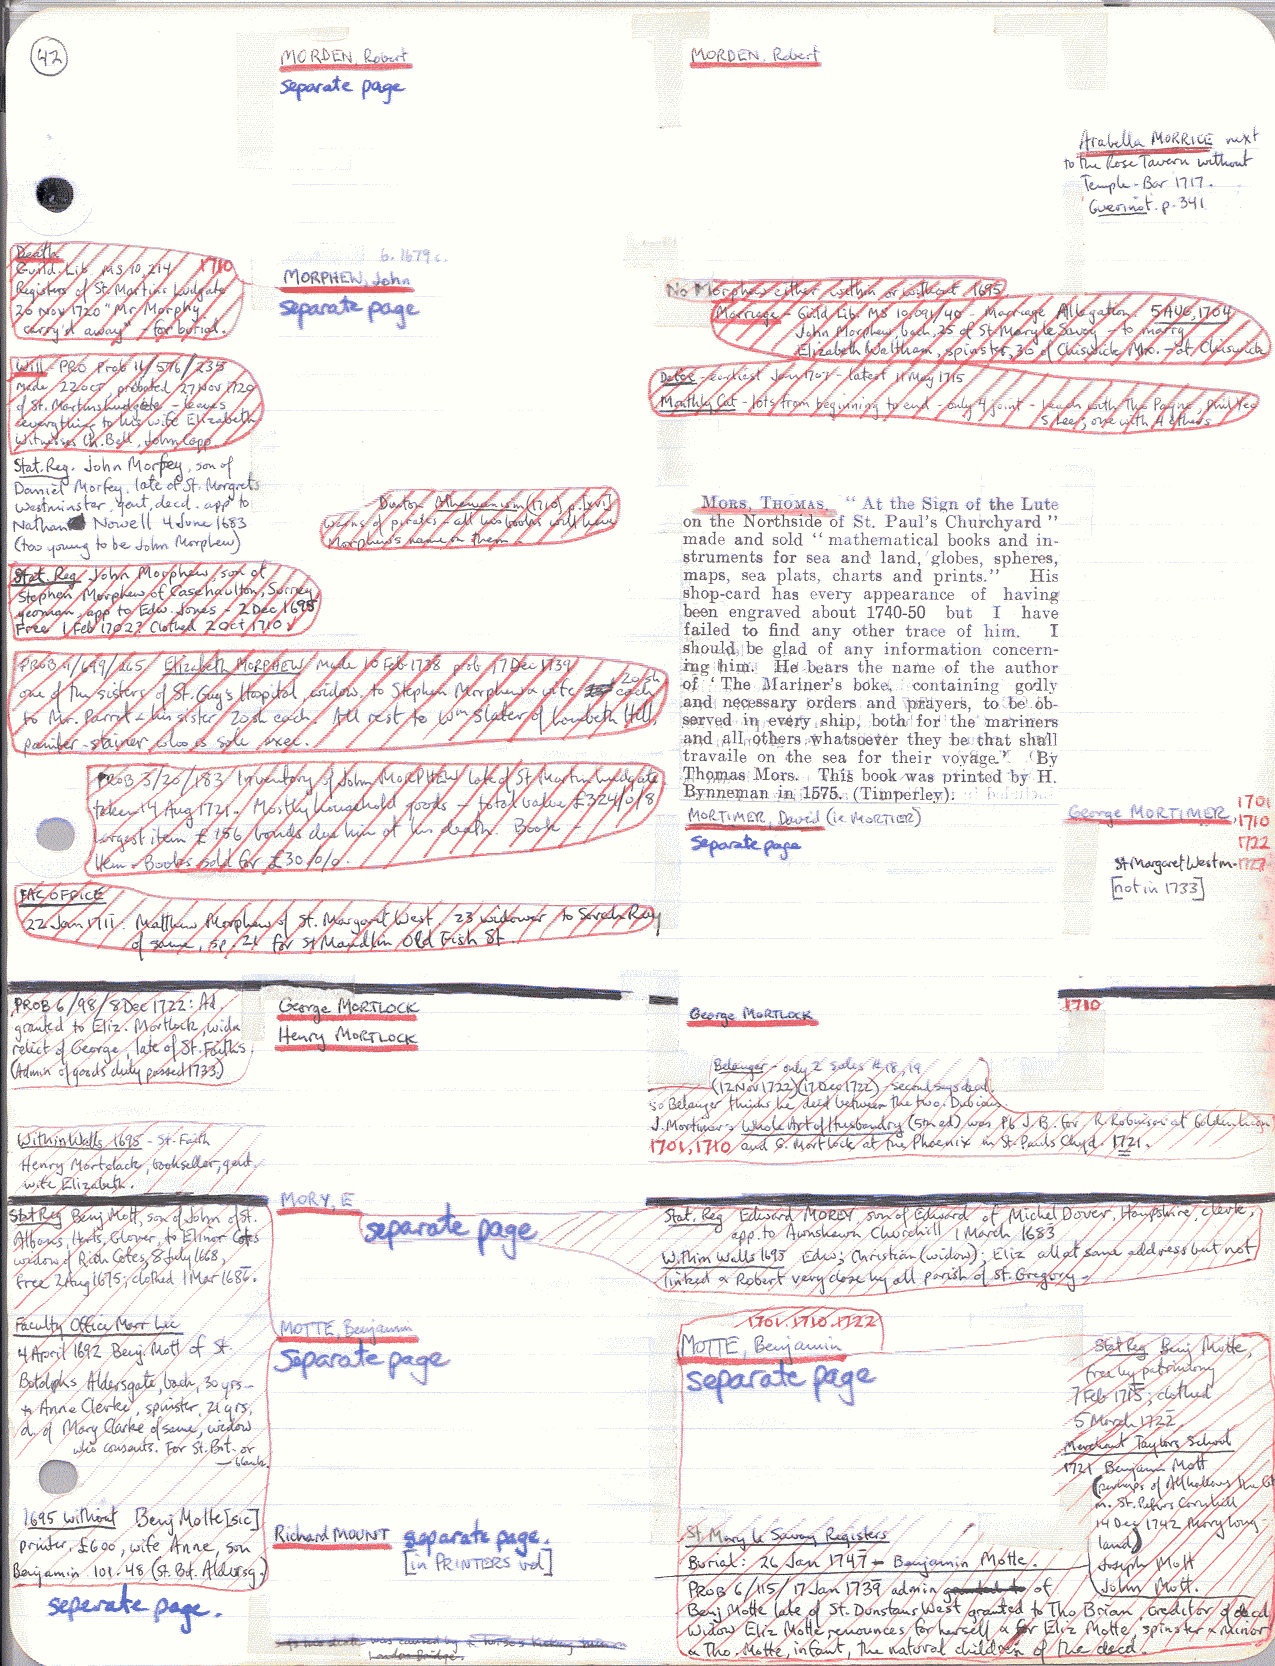 42
MORDEN, Robert
separate page
MORDEN, Robert
Arabella MORRICE next
to the Rose Tavern without
Temple-Bar 1717.
Guerinot. p. 341
Death 1710
Guild. Lib. MS 10,214
Registers of St. Martins Ludgate
26 Nov 1720 "Mr. Morphy
carry'd away" - for burial.
Will - PRO Prob 11/576/235
made 22 oct probated 27 Nov 1720
of St. Martins Ludgate - leaves
everything to his wife Elizabeth
Witnesses Ch. Bell, John Copp.
Stat. Reg. John Morfey, son of
Daniel Morfey, late of St. Margrets
Westminster, gent, decd. app to
Nathan Nowell 4 June 1683
(too young to be John Morphew)
Stat. Reg John Morphew, son of
Stephen Morphew of Casehaulton, Surrey
yeoman, app to Edw. Jones - 2 Dec 1695
Free 1 Feb 1702? Clothed 2 Oct 1710
b. 1679 c.
MORPHEW, John
separate page
Dunton Athenianism (1710) p. [xvi]
warns of pirates - all his books will have
Morphew's name on them.
PROB 11/699/265 Elizabeth MORPHEW made 10 Feb 1738 prob 17 Dec 1739
one of the sisters of St. Guy's Hospital, widow, to Stephen Morphew & wife 20sh each
to Mr. Parrot & his sister 20sh each. All rest to Wm Slater of Lambeth Hill,
painter-stainer who is sole exec.
PROB 3/20/183 Inventory of John MORPHEW late of St Martin Ludgate
taken 14 Aug 1721. Mostly household goods - total value £324/0/8
Largest item £156 bonds due him at his death. Book -
item - Books sold for £30/0/0.
FAC OFFICE
22 Jan 1711. Matthew Morphew of St. Margaret West, 23 widower to Sarah Ray
of same, sp. 21 for St Maudlin Old Fish St.
No Morphew either within or without 1695
Marriage - Guild Lib. MS 10,091/40 - Marriage Allegation. 5 AUG, 1704
John Morphew, bach, 25 of St Mary le Savoy - to marry
Elizabeth Waltham, spinster, 30 of Chiswick Mx. - at Chiswick
Dates - earliest Jan 1707 - latest 11 May 1715
Monthly Cat - lots from beginning to end - only 4 joint - 1 each with Tho Payne, Phil Yeo
S Lee; one with 4 others
MORS, THOMAS. "At the Sign of the Lute
on the Northside of St. Paul's Churchyard"
made and sold "mathematical books and in-
struments for sea and land, globes, spheres,
maps, sea plats, charts and prints." His
shop-card has every appearance of having
been engraved about 1740-50 but I have
failed to find any other trace of him. I
should be glad of any information concern-
ing him. He bears the name of the author
of 'The Mariner's boke, containing godly
and necessary orders and prayers, to be ob-
served in every ship, both for the mariners
and all others whatsoever they be that shall
travaile on the sea for their voyage.' By
Thomas Mors. This book was printed by H.
Bynneman in 1575. (Timperley).
MORTIMER, David (ie MORTIER)
separate page
George MORTIMER, 1701
1710
1722
St Margaret Westm. 1727
[not in 1733]
PROB 6/98/8 Dec 1722: Ad.
granted to Eliz. Mortlock, widn
relict of George, late of St. Faiths.
(Admin of goods duly passed 1733.)
Within Walls 1695 - St. Faith
Henry Mortclack, bookseller, gent.
wife Elizabeth.
George MORTLOCK
Henry MORTLOCK
George MORTLOCK
1710
Belanger - only 2 sales #18, 19
(12 Nov 1722) (17 Dec 1722) - second says decd.
so Belanger thinks he died between the two. Dubious.
J. Mortimer's Whole Art of Husbandry (5th ed) was Pb J.B. for R. Robinson at Golden Lion
1701, 1710 and G. Mortlock at the Phoenix in St. Pauls Chyd. 1721.
MORY, E
separate page
Stat. Reg Edward MOREY, son of Edward of Michel Dover, Hampshire, clerk,
app. to Awnsham Churchill 1 March 1683
Within Walls 1695 Edw; Christian (widow); Eliz all at same address but not
linked & Robert very close by all parish of St. Gregory -
Stat Reg Benj Mott, son of John of St.
Albans, Herts, Glover, to Ellinor Cotes
widow of Rich Cotes, 8 July 1668,
Free 2 Aug 1675; clothed 1 Mar 1686.
Faculty Office Marr Lic
4 April 1692 Benj. Mott of St.
Botolphs Aldersgate, bach, 30 yrs -
to Anne Clerke, spinster, 21 yrs,
d. of Mary Clarke of same, widow
who consents. For St. Bot. or
- blank.
1695 without Benj Motte [sic]
printer, £600, wife Anne, son
Benjamin 101.48 (St. Bot. Aldersg.)
seperate page.
MOTTE, Benjamin
Separate page
Richard MOUNT separate page.
[in PRINTERS vol]
1701. 1710. 1722
MOTTE, Benjamin
separate page
Stat Reg Benj Motte,
free by patrimony
7 Feb 1715; clothed
5 March 1722.
Merchant Taylors School
1721 Benjamin Mott
(perhaps of Allhallows the Gt
m. St. Peters Cornhill
14 Dec 1742 Mary Long-
land)
Joseph Mott
John Mott.
St Mary le Savoy Registers
Burial: 26 Jan 1747 - Benjamin Motte.
PROB 6/115/17 Jan 1739 admin granted to of
Benj Motte late of St. Dunstans West granted to Tho Brian, creditor of decd
Widow Eliz Motte renounces for herself & for Eliz Motte, spinster & minor
& Tho. Motte, infant, the natural children of the decd.